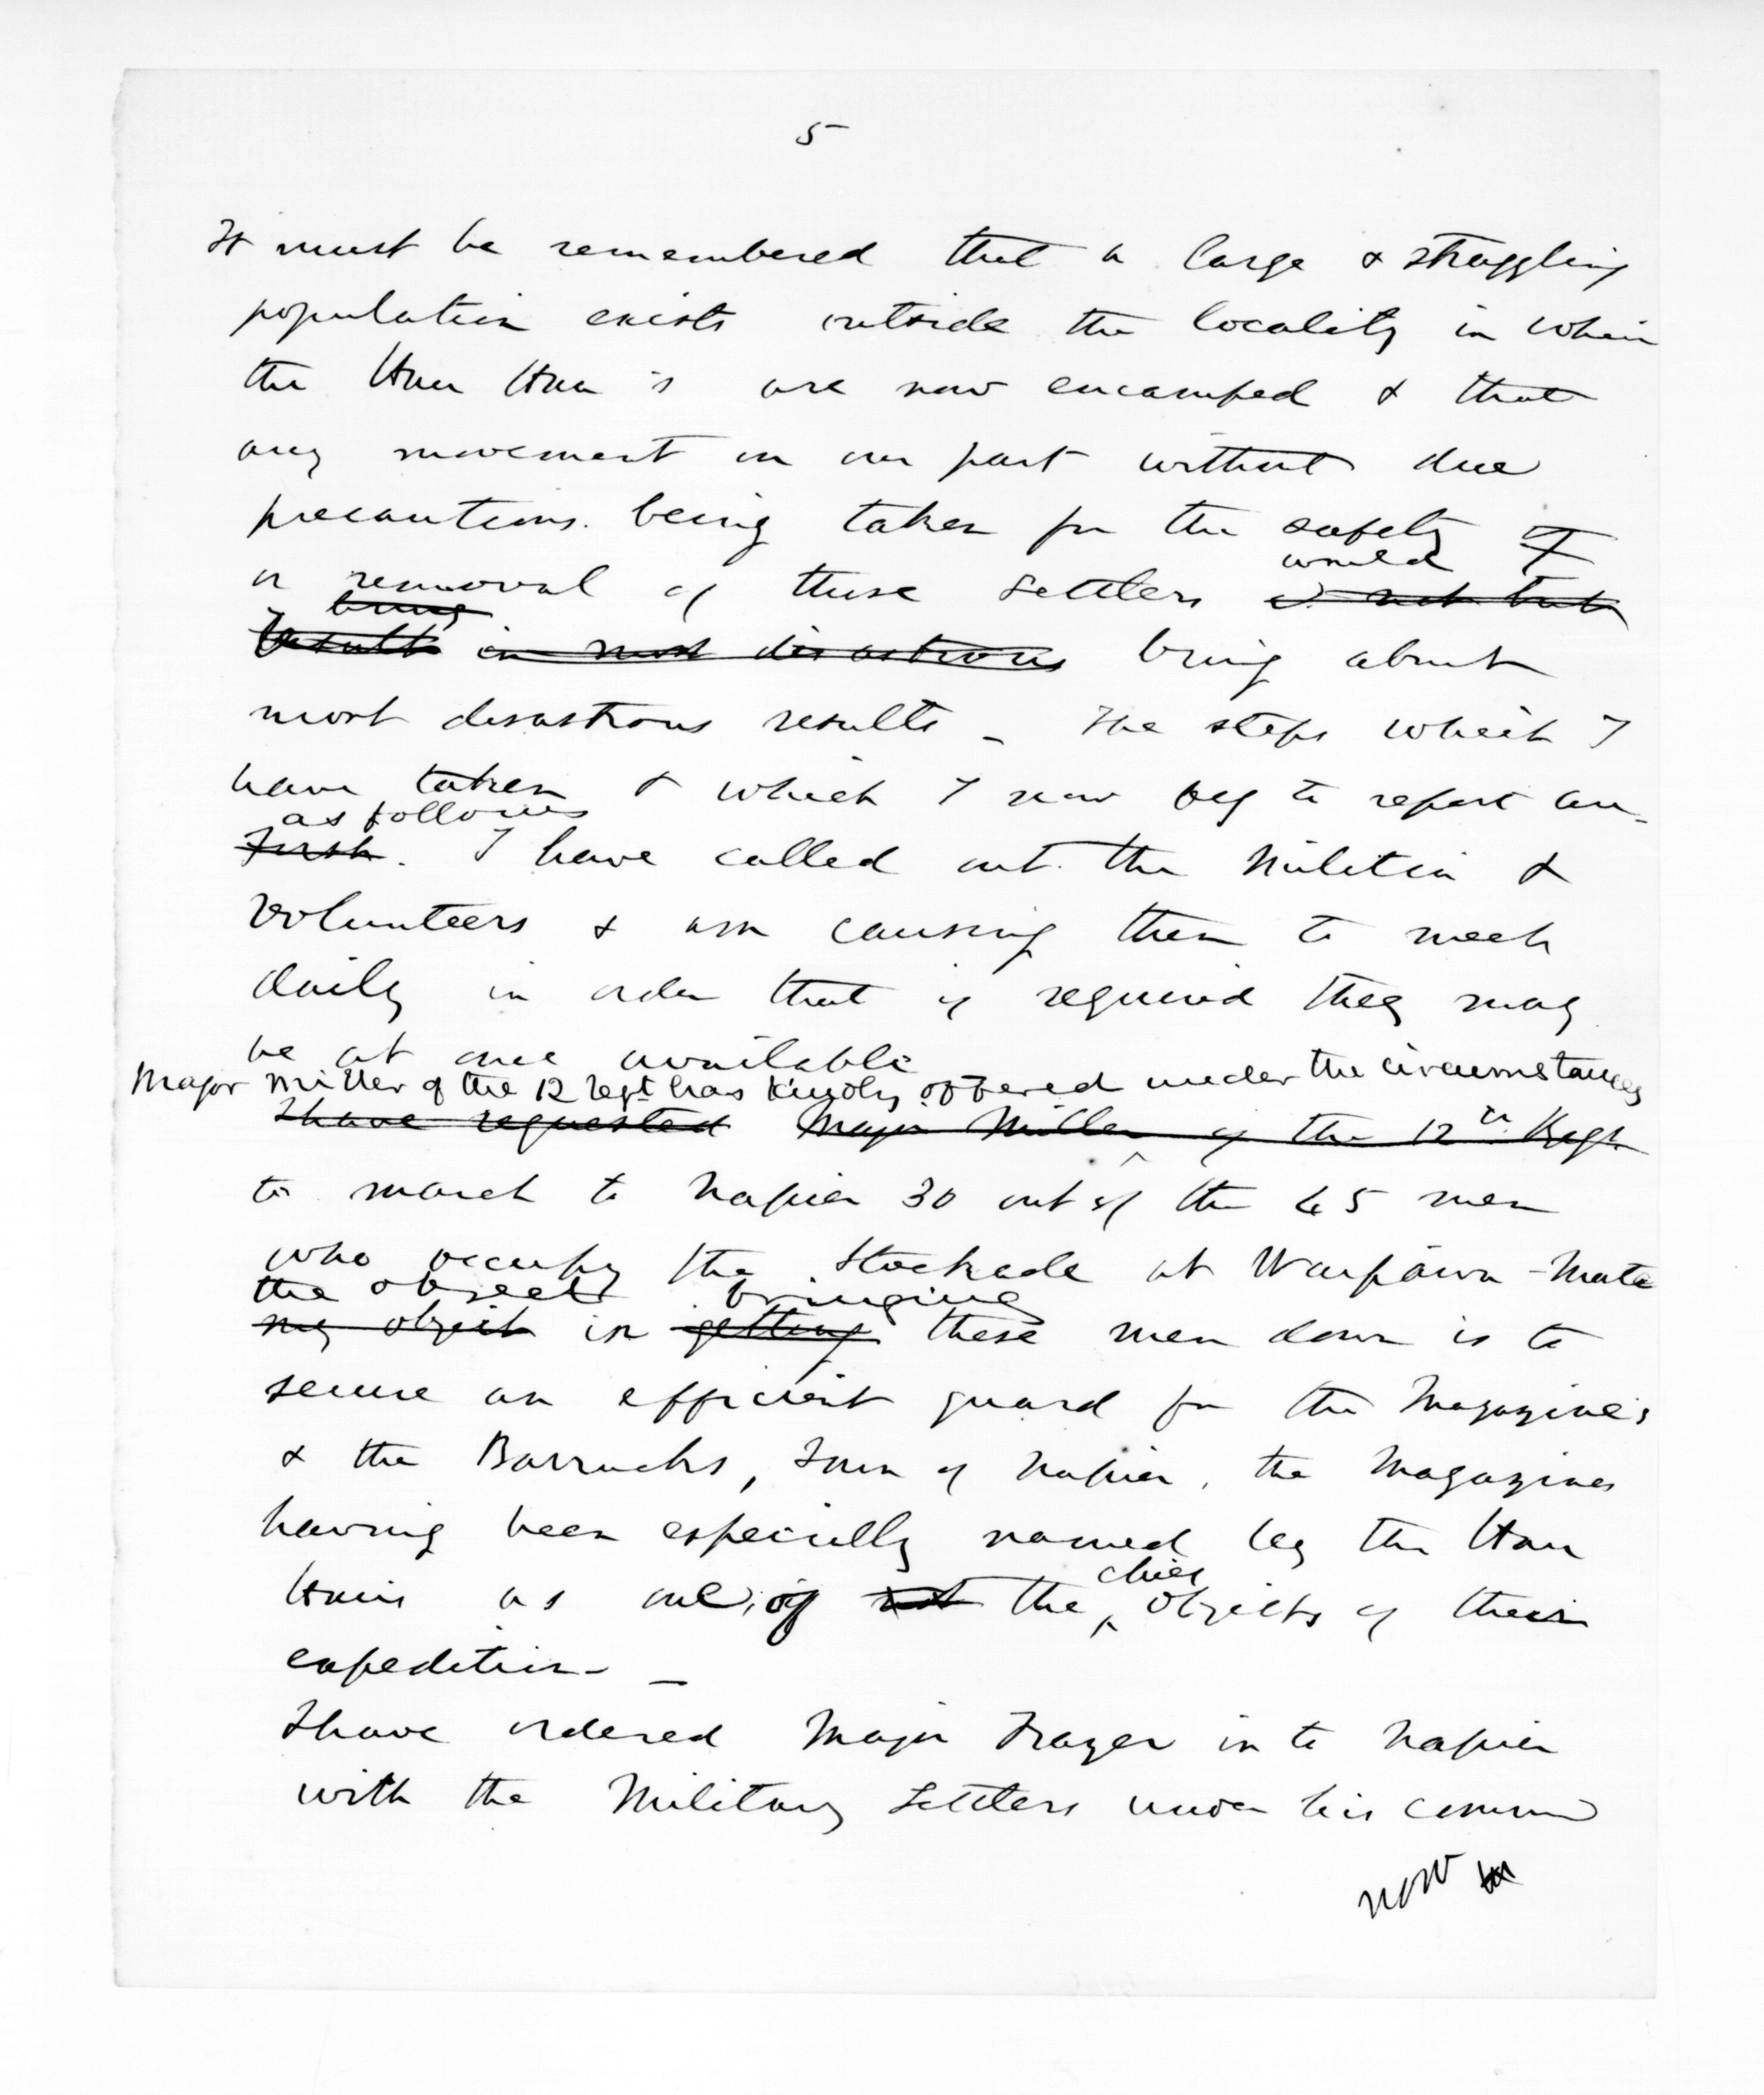 5
It must be remembered that a large & straggling
population exists outside the locality in which
the Hau Hau's are now encamped & that
any movement on our part without due
precautions being taken for the safety of
would
or removal of these Settlers
bring
results in most disastrous bring about
most disastrous results _ The steps which I
have taken & which I now beg to report are
as follows
First. I have called out the Militia &
Volunteers & am causing them to meet
daily in order that if required they may
be at once available
Major Miller of the 12 Regt has kindly offered under the circumstances
I have requested Major Miller of the 12th Regt
to march to Napier 30 out of the 45 men
who occupy the Stockade at Waipawa-mate
the object bringing
my object in getting these men down is to
secure an efficient guard for the Magazine's
& the Barracks, Town of Napier, the Magazines
having been especially named by the Hau
chief
Hau's as one of the objects of their
expedition _
I have ordered Major Frazer in to Napier
with the Military Settlers under his comm
now in